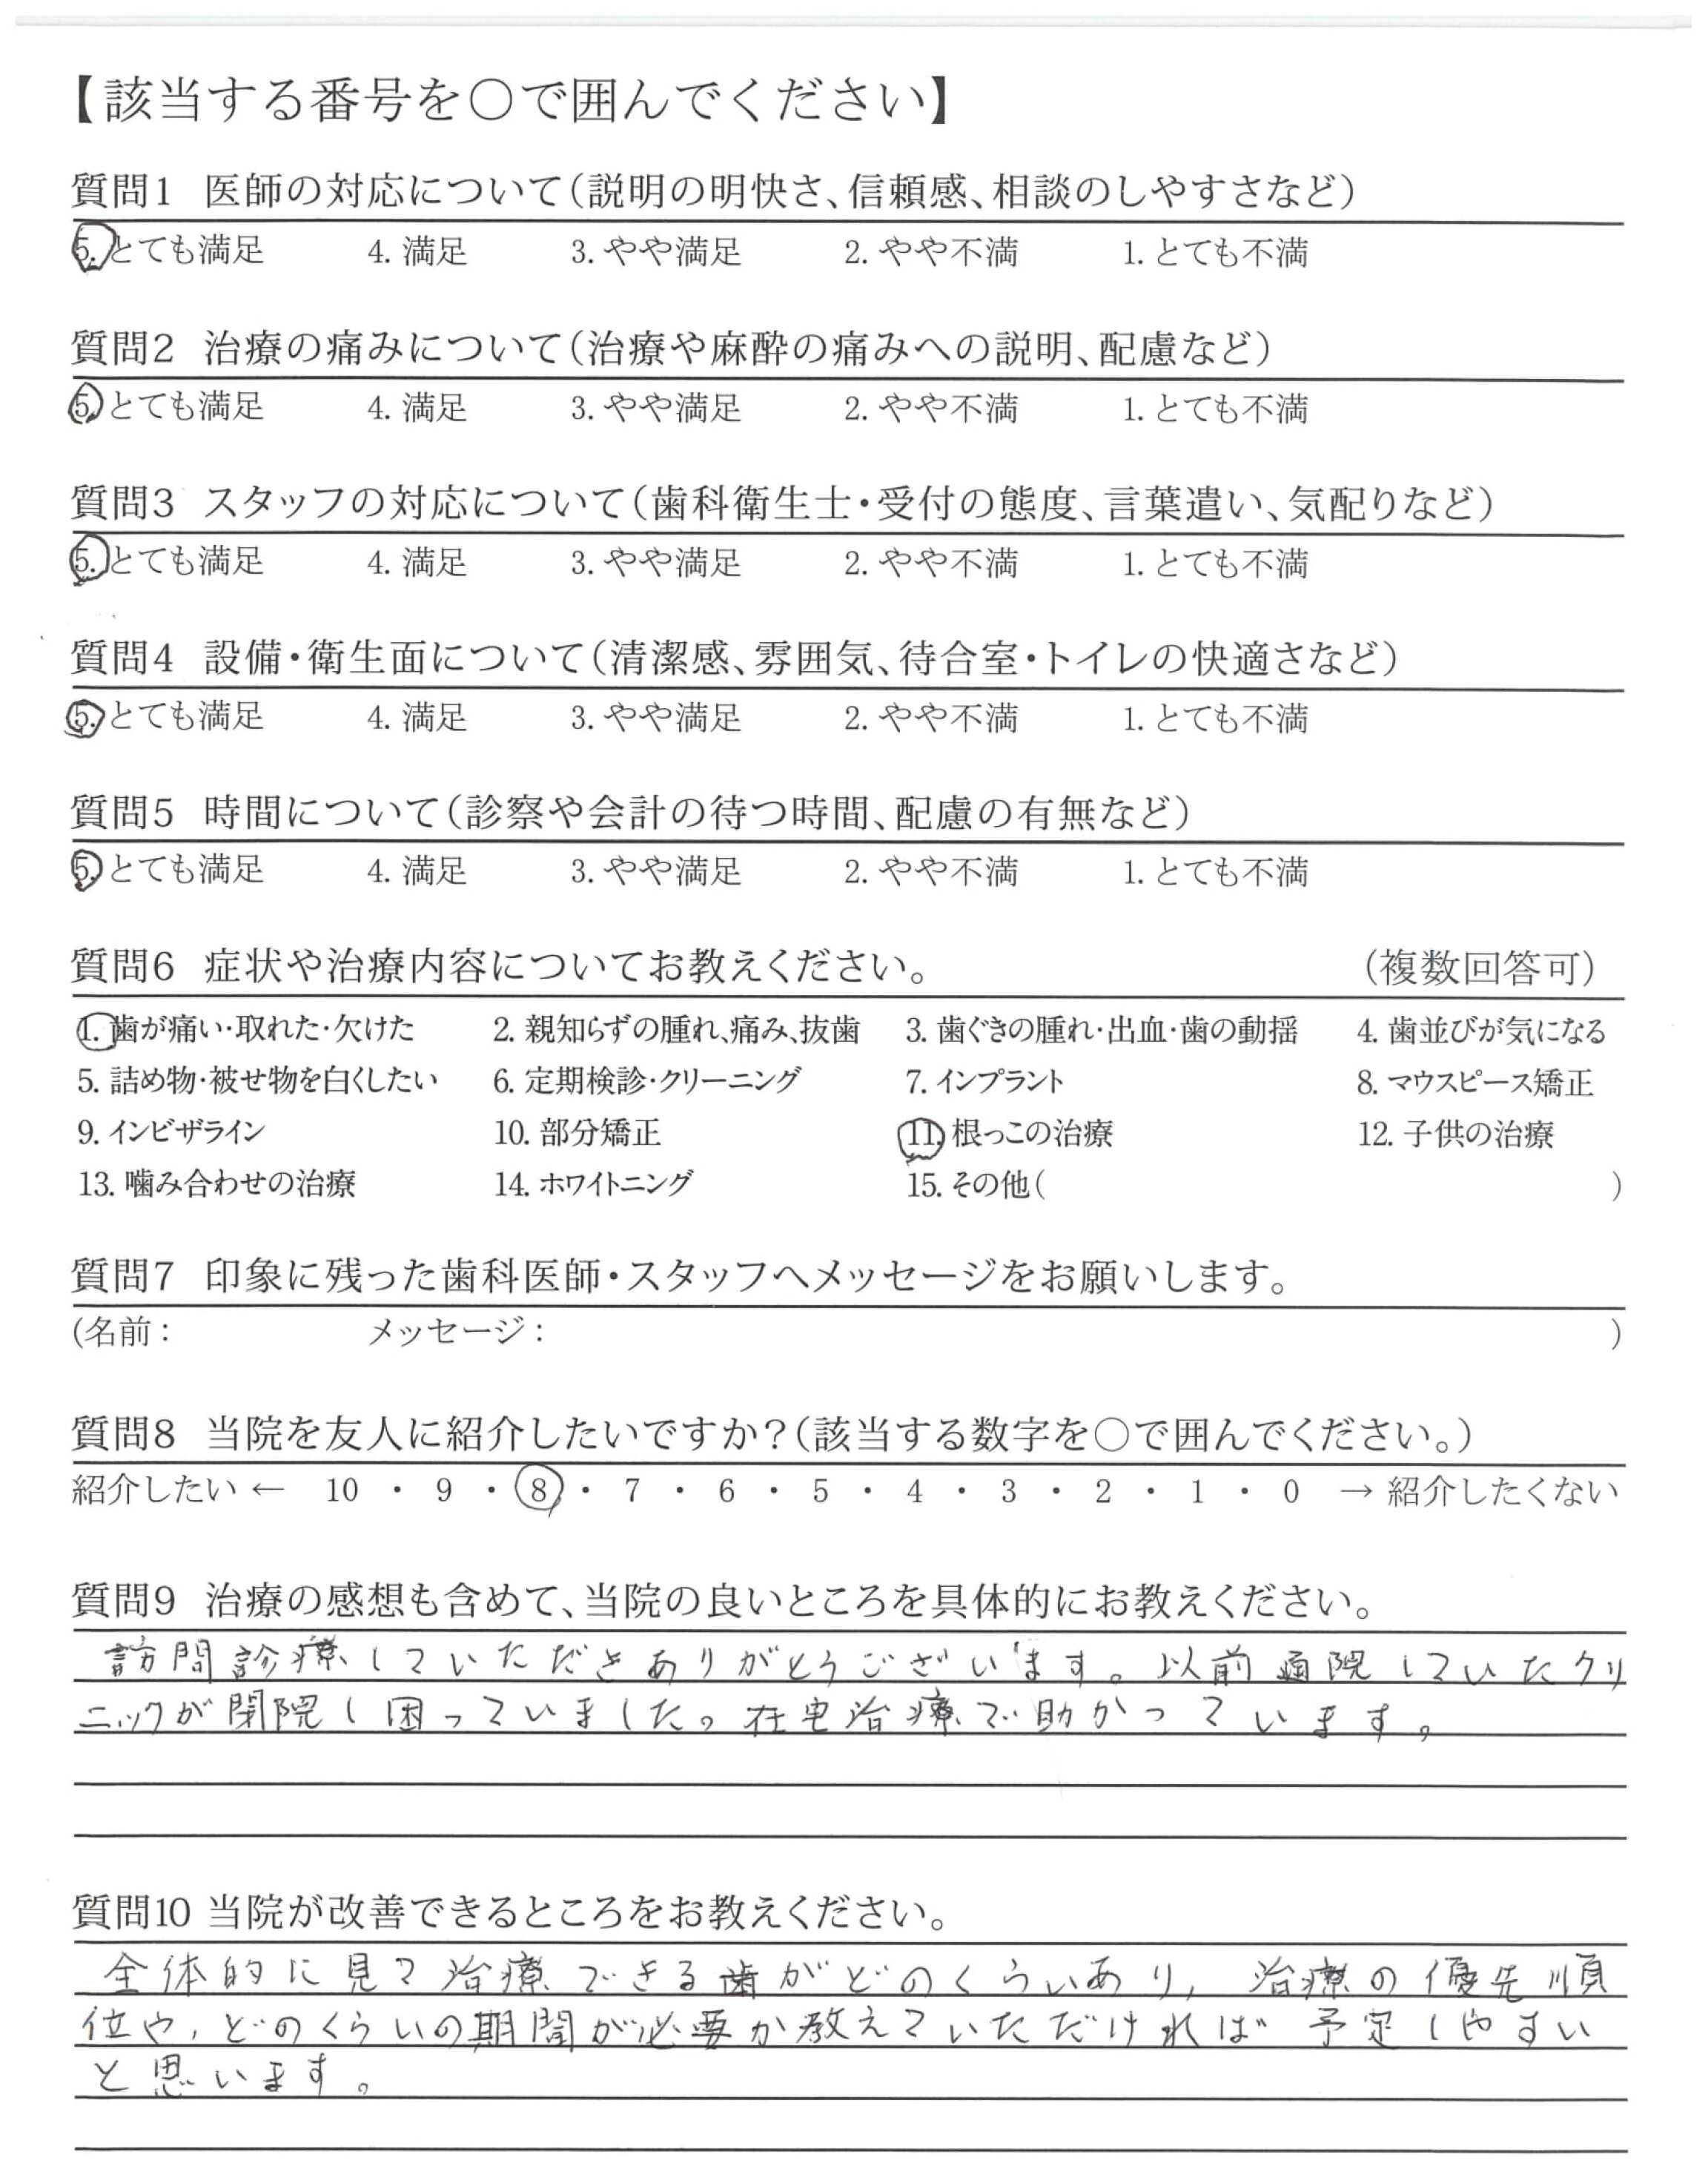 【該当する番号を○で囲んでください】
質問1 医師の対応について(説明の明快さ、信頼感、相談のしやすさなど)
5. とても満足 4. 満足 3. やや満足 2. やや不満 1. とても不満
質問2 治療の痛みについて(治療や麻酔の痛みへの説明、配慮など)
5. とても満足 4. 満足 3. やや満足 2. やや不満 1. とても不満
質問3 スタッフの対応について(歯科衛生士・受付の態度、言葉遣い、気配りなど)
5. とても満足 4. 満足 3. やや満足 2. やや不満 1. とても不満
質問4 設備・衛生面について(清潔感、雰囲気、待合室・トイレの快適さなど)
5. とても満足 4. 満足 3. やや満足 2. やや不満 1. とても不満
質問5 時間について(診察や会計の待つ時間、配慮の有無など)
5. とても満足 4. 満足 3. やや満足 2. やや不満 1. とても不満
質問6 症状や治療内容についてお教えください。 (複数回答可)
1. 歯が痛い・取れた・欠けた 2. 親知らずの腫れ、痛み、抜歯 3. 歯ぐきの腫れ・出血・歯の動揺 4. 歯並びが気になる
5. 詰め物・被せ物を白くしたい 6. 定期検診・クリーニング 7. インプラント 8. マウスピース矯正
9. インビザライン 10. 部分矯正 11. 根っこの治療 12. 子供の治療
13. 噛み合わせの治療 14. ホワイトニング 15. その他( )
質問7 印象に残った歯科医師・スタッフへメッセージをお願いします。
(名前: メッセージ: )
質問8 当院を友人に紹介したいですか?(該当する数字を○で囲んでください。)
紹介したい ← 10 ・ 9 ・ 8 ・ 7 ・ 6 ・ 5 ・ 4 ・ 3 ・ 2 ・ 1 ・ 0 → 紹介したくない
質問9 治療の感想も含めて、当院の良いところを具体的にお教えください。
訪問診療していただきありがとうございます。以前通院していたクリ
ニックが閉院し困っていました。在宅治療で助かっています。
質問10 当院が改善できるところをお教えください。
全体的に見て治療できる歯がどのくらいあり、治療の優先順
位や、どのくらいの期間が必要か教えていただければ予定しやすい
と思います。